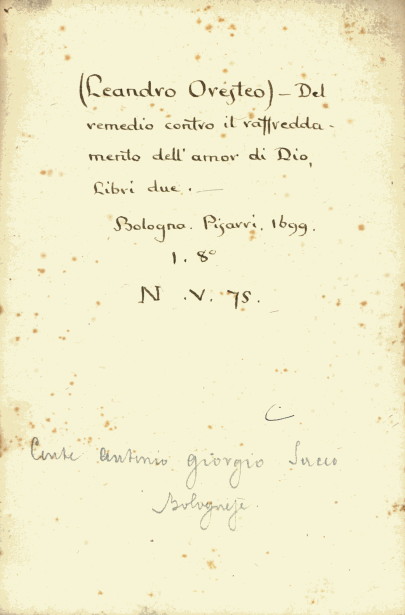 (Leandro Oresteo) – Del
remedio contro il raffredda-
mento dell'amor di Dio,
Libri due. —
Bologna. Pisarri. 1699.
1. 8°
N .V. 75.
Conte Antonio Giorgio Succi
Bolognese.